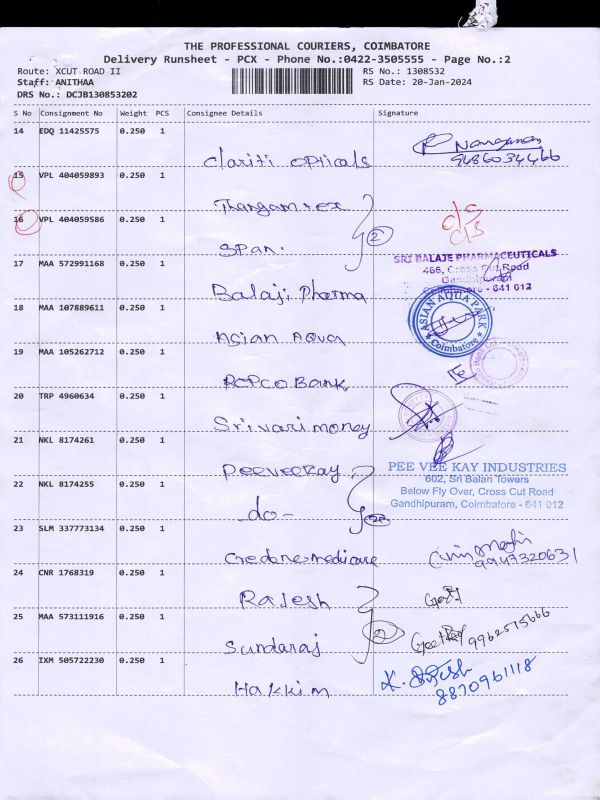 THE PROFESSIONAL COURIERS, COIMBATORE
Delivery Runsheet - PCX - Phone No.:0422-3505555 - Page No.:2
Route: XCUT ROAD II RS No.: 1308532
Staff: ANITHAA RS Date: 20-Jan-2024
DRS No.: DCJB130853202
S No Consignment No Weight PCS Consignee Details Signature
14 EDQ 11425575 0.250 1
Clariti opticals 9486034466
15 VPL 404059893 0.250 1
Thangam
16 VPL 404059586 0.250 1
2
Span.
17 MAA 572991168 0.250 1
SRI BALAJE PHARMACEUTICALS
466, Cross Cut Road
Gandhipuram
Coimbatore - 641 012
Balaji Pharma
18 MAA 107889611 0.250 1
ASIAN AQUA PARK
Coimbatore
Asian Aqua
19 MAA 105262712 0.250 1
Repco Bank
20 TRP 4960634 0.250 1
Srivari money
21 NKL 8174261 0.250 1
Peeveekay
PEE VEE KAY INDUSTRIES
602, Sri Balan Towers
Below Fly Over, Cross Cut Road
Gandhipuram, Coimbatore - 641 012
22 NKL 8174255 0.250 1
do-
23 SLM 337773134 0.250 1
Credone medicare 9947320631
24 CNR 1768319 0.250 1
Rajesh
25 MAA 573111916 0.250 1
Sundaraj 9962515666
26 IXM 505722230 0.250 1
Hakkim 8870961118